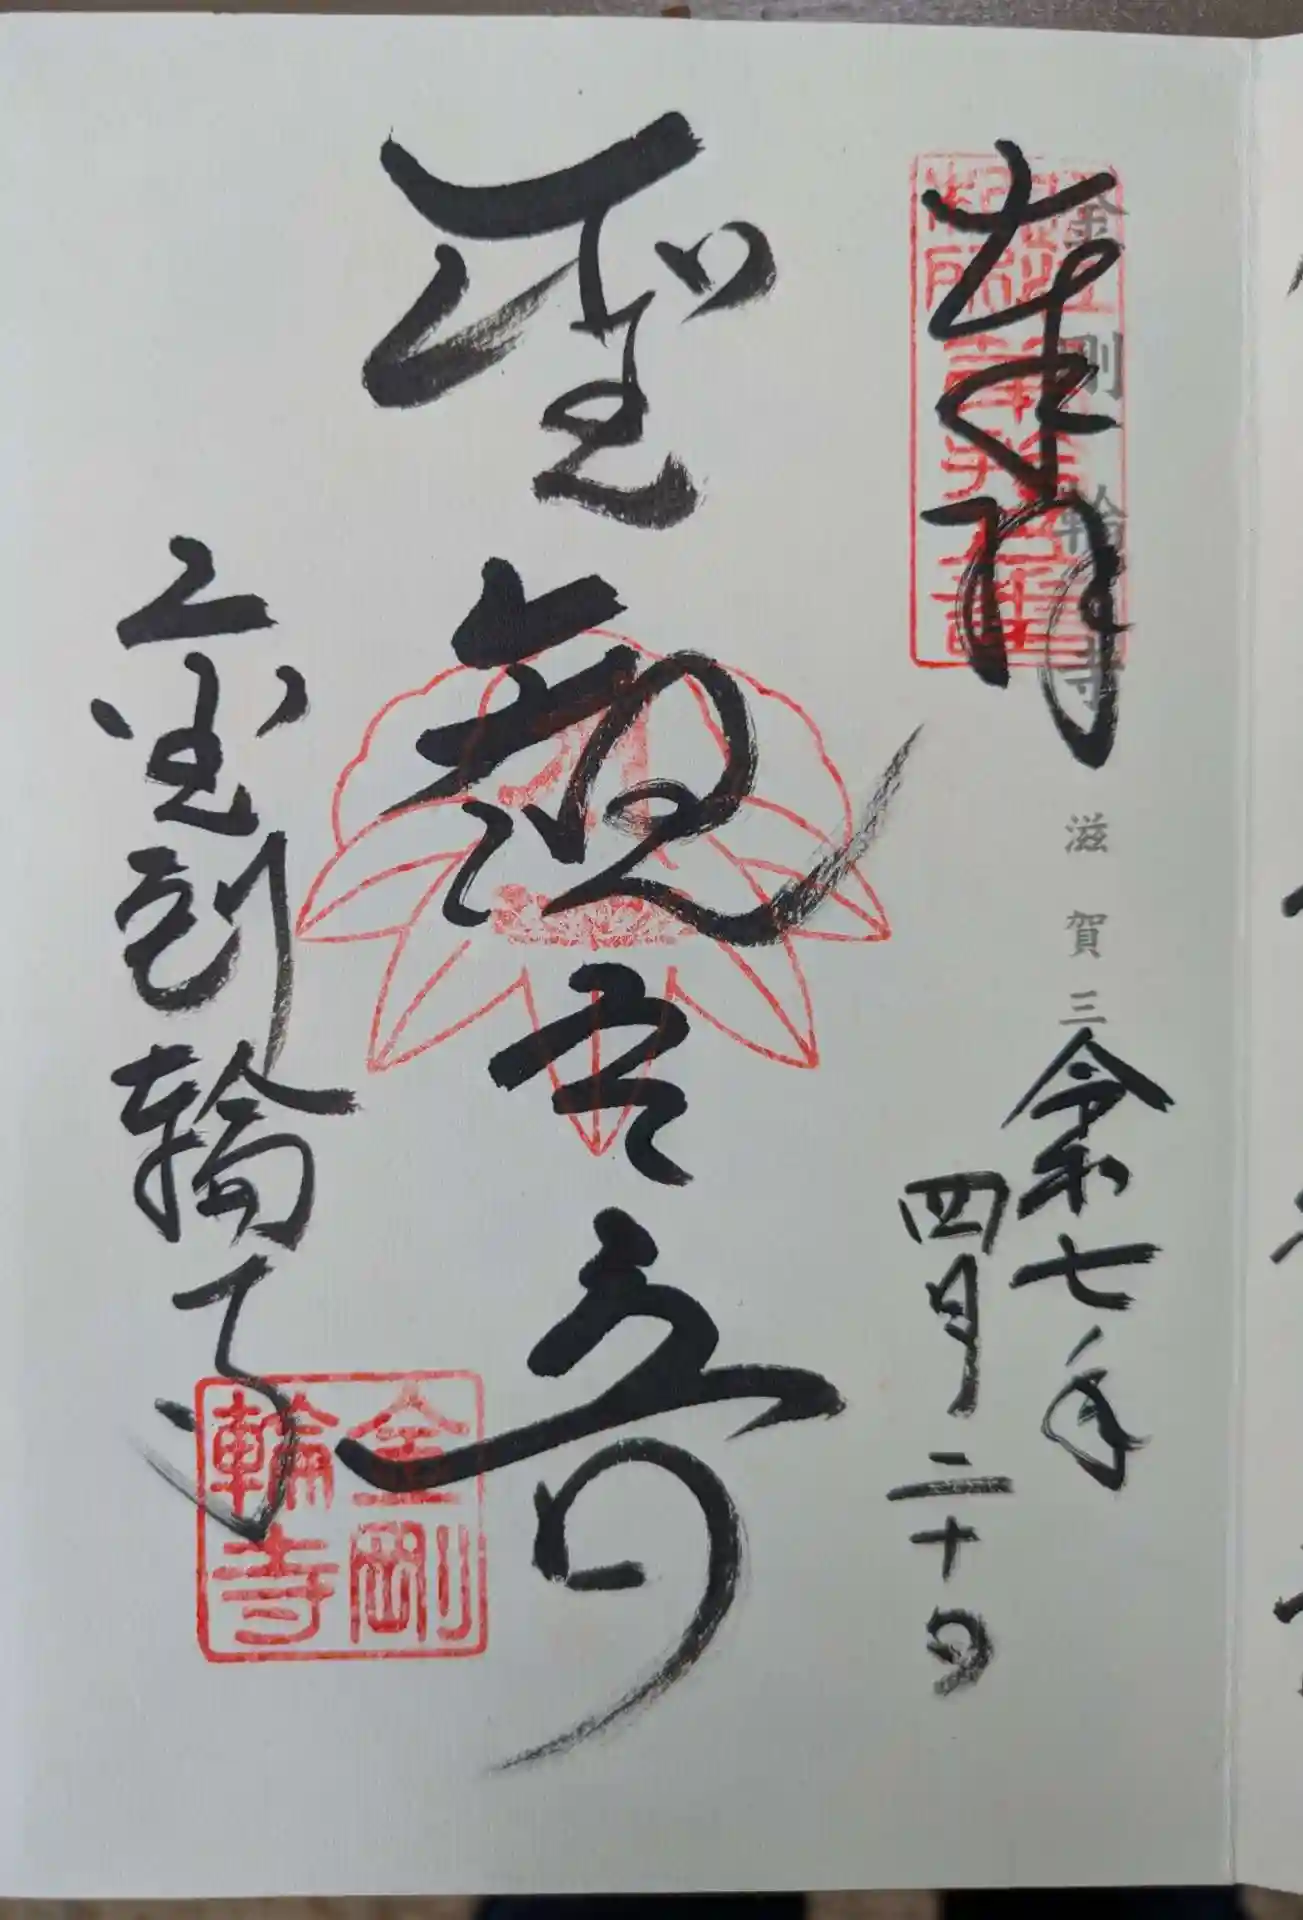 奉拝
金剛輪寺 滋賀三
令和七年
四月二十日
聖観世音
金剛輪寺
金剛
輪寺